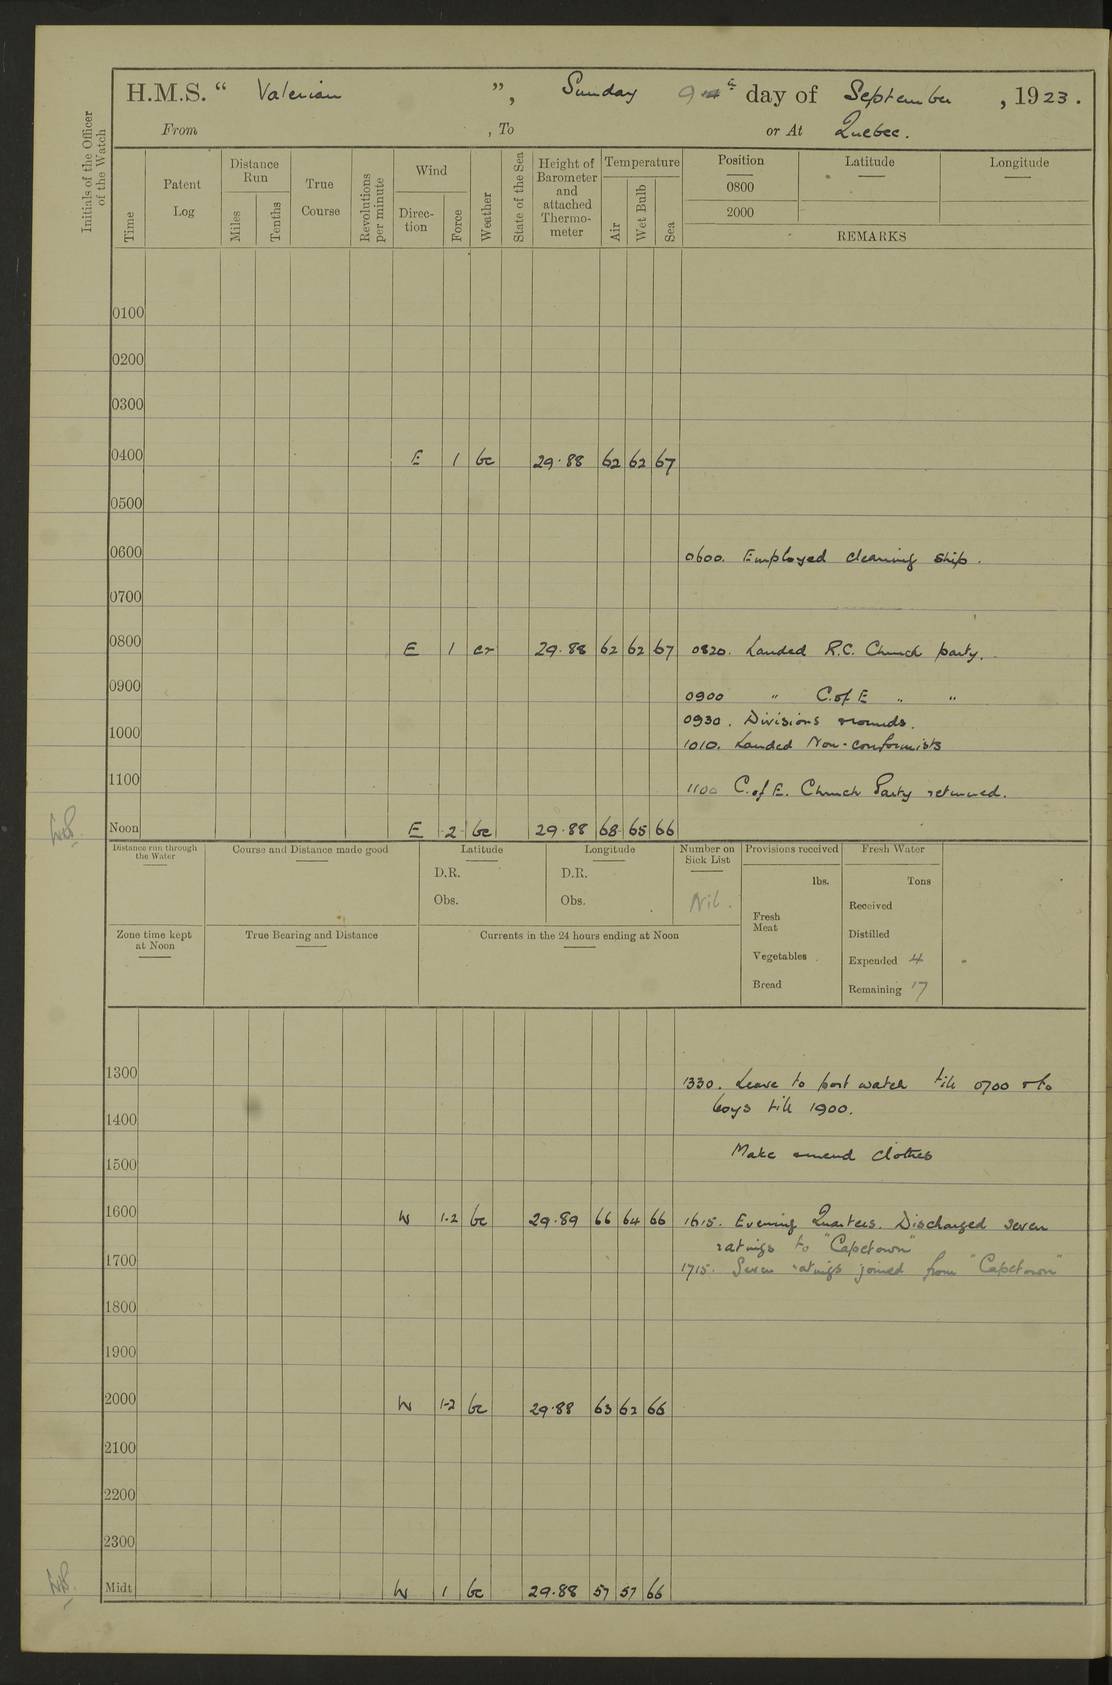 H.M.S. “ Valerian ”, Sunday 9th day of September , 1923.
From , To or At Quebec.
Initials of the Officer of the Watch
Time
Patent Log
Distance Run
Miles
Tenths
True Course
Revolutions per minute
Wind
Direction
Force
Weather
State of the Sea
Height of Barometer and attached Thermometer
Temperature
Air
Wet Bulb
Sea
Position Latitude Longitude
0800
2000
REMARKS
0100
0200
0300
0400 E 1 bc 29.88 62 62 67
0500
0600 0600. Employed cleaning ship.
0700
0800 E 1 cr 29.88 62 62 67 0820. Landed R.C. Church party.
0900 0900 " C.of E " "
0930. Divisions rounds.
1000 1010. Landed Non-conformists
1100 1100 C.of E. Church Party returned.
Noon E 2 bc 29.88 68 65 66
Distance run through the Water
Course and Distance made good
Latitude
D.R.
Obs.
Longitude
D.R.
Obs.
Number on Sick List
Nil.
Provisions received
lbs.
Fresh Meat
Vegetables
Bread
Fresh Water
Tons
Received
Distilled
Expended 4
Remaining 17
Zone time kept at Noon
True Bearing and Distance
Currents in the 24 hours ending at Noon
1300 1330. Leave to port watch till 0700 & to
boys till 1900.
1400
Make & mend clothes
1500
1600 W 1-2 bc 29.89 66 64 66 1615. Evening Quarters. Discharged seven
ratings to "Capetown"
1700 1715. Seven ratings joined from "Capetown"
1800
1900
2000 W 1-2 bc 29.88 63 62 66
2100
2200
2300
Midt W 1 bc 29.88 57 57 66